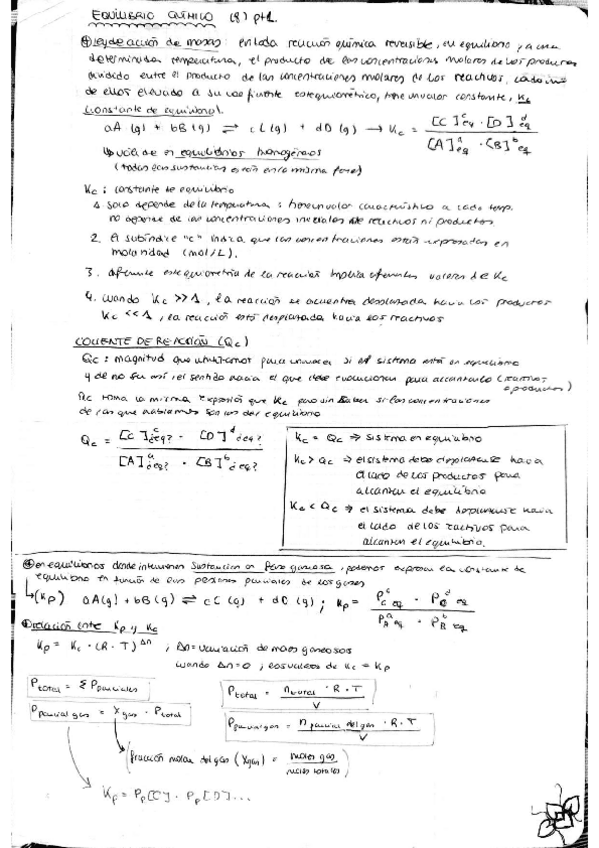 EQUILIBRIO QUÍMICO (8) pt1.
ley de acción de masas: en toda reacción química reversible, en equilibrio y a una
determinada temperatura, el producto de las concentraciones molares de los productos
dividido entre el producto de las concentraciones molares de los reactivos, cada uno
de ellos elevado a su coeficiente estequiométrico, tiene un valor constante, Kc
(constante de equilibrio).
aA (g) + bB (g) ⇌ cC (g) + dD (g) → Kc = [C]^c eq · [D]^d eq / [A]^a eq · [B]^b eq
equilibrios homogéneos
(todas las sustancias están en la misma fase)
Kc: constante de equilibrio
1. Solo depende de la temperatura; tiene un valor característico a cada temp.
no depende de las concentraciones iniciales de reactivos ni productos
2. El subíndice "c" indica que las concentraciones están expresadas en
molaridad (mol/L).
3. diferente estequiometría de la reacción implica diferentes valores de Kc
4. cuando Kc >> 1, la reacción se encuentra desplazada hacia los productos
Kc << 1, la reacción está desplazada hacia los reactivos
COCIENTE DE REACCIÓN (Qc)
Qc: magnitud que utilizamos para conocer si el sistema está en equilibrio
y de no ser así, el sentido hacia el que debe evolucionar para alcanzarlo (reactivos o productos)
Qc toma la misma expresión que Kc pero sin saber si las concentraciones
de las que hablamos son las del equilibrio
Qc = [C]^c ¿eq? · [D]^d ¿eq? / [A]^a ¿eq? · [B]^b ¿eq?
Kc = Qc ⇒ sistema en equilibrio
Kc > Qc ⇒ el sistema debe desplazarse hacia
el lado de los productos para
alcanzar el equilibrio
Kc < Qc ⇒ el sistema debe desplazarse hacia
el lado de los reactivos para
alcanzar el equilibrio.
en equilibrios donde intervienen sustancias en fase gaseosa, podemos expresar la constante de
equilibrio en función de las presiones parciales de los gases
(Kp) aA(g) + bB(g) ⇌ cC (g) + dD (g) ; Kp = P^c C eq · P^d D eq / P^a A eq · P^b B eq
relación entre Kp y Kc
Kp = Kc · (R · T)^Δn ; Δn = variación de moles gaseosos
cuando Δn = 0 ; los valores de Kc = Kp
Ptotal = Σ Pparciales
Ptotal = n total · R · T / V
Pparcial gas = Xgas · Ptotal
Pparcial gas = n parcial del gas · R · T / V
fracción molar del gas (Xgas) = moles gas / moles totales
Kp = Pp[C] · Pp[D]...